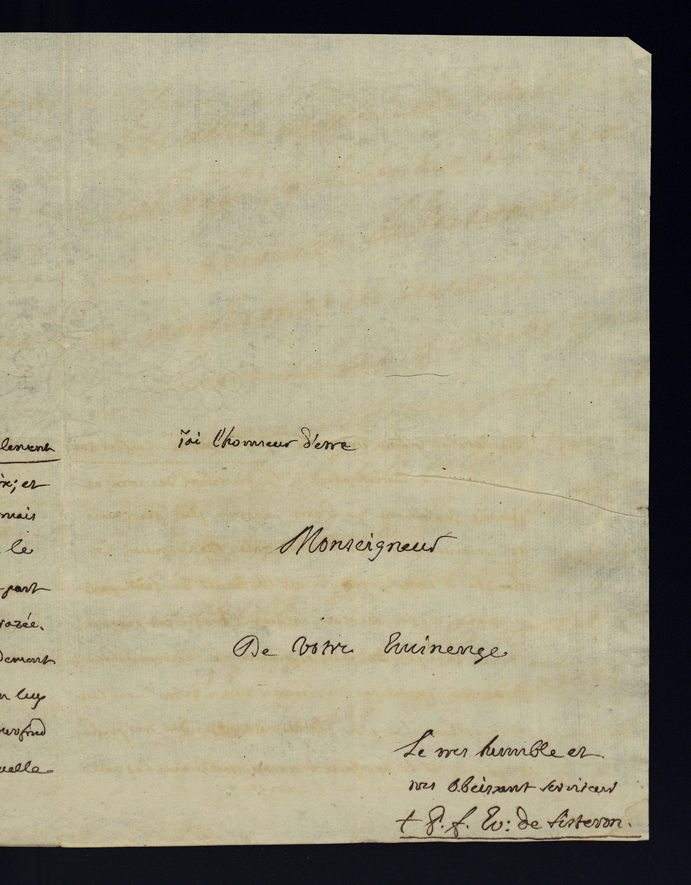 lement
; et
mais
le
part
dement
luy
j'ai l'honneur d'etre
Monseigneur
De Votre Eminence
Le tres humble et
tres obeissant serviteur
† P. f. Ev: de Sisteron.